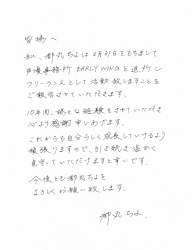 皆様へ
私、都丸ちよは2月31日をもちまして
声優事務所 EARLY WINGを退所し
フリーランスとして活動致しますことを
ご報告させていただきます。
10年間、様々な経験をさせていただき
心より感謝申しあげます。
これからも自分らしく成長していけるよう
頑張りますので、引き続き温かく
見守っていただけますと幸いです。
今後とも都丸ちよを
よろしくお願い致します。
都丸ちよ